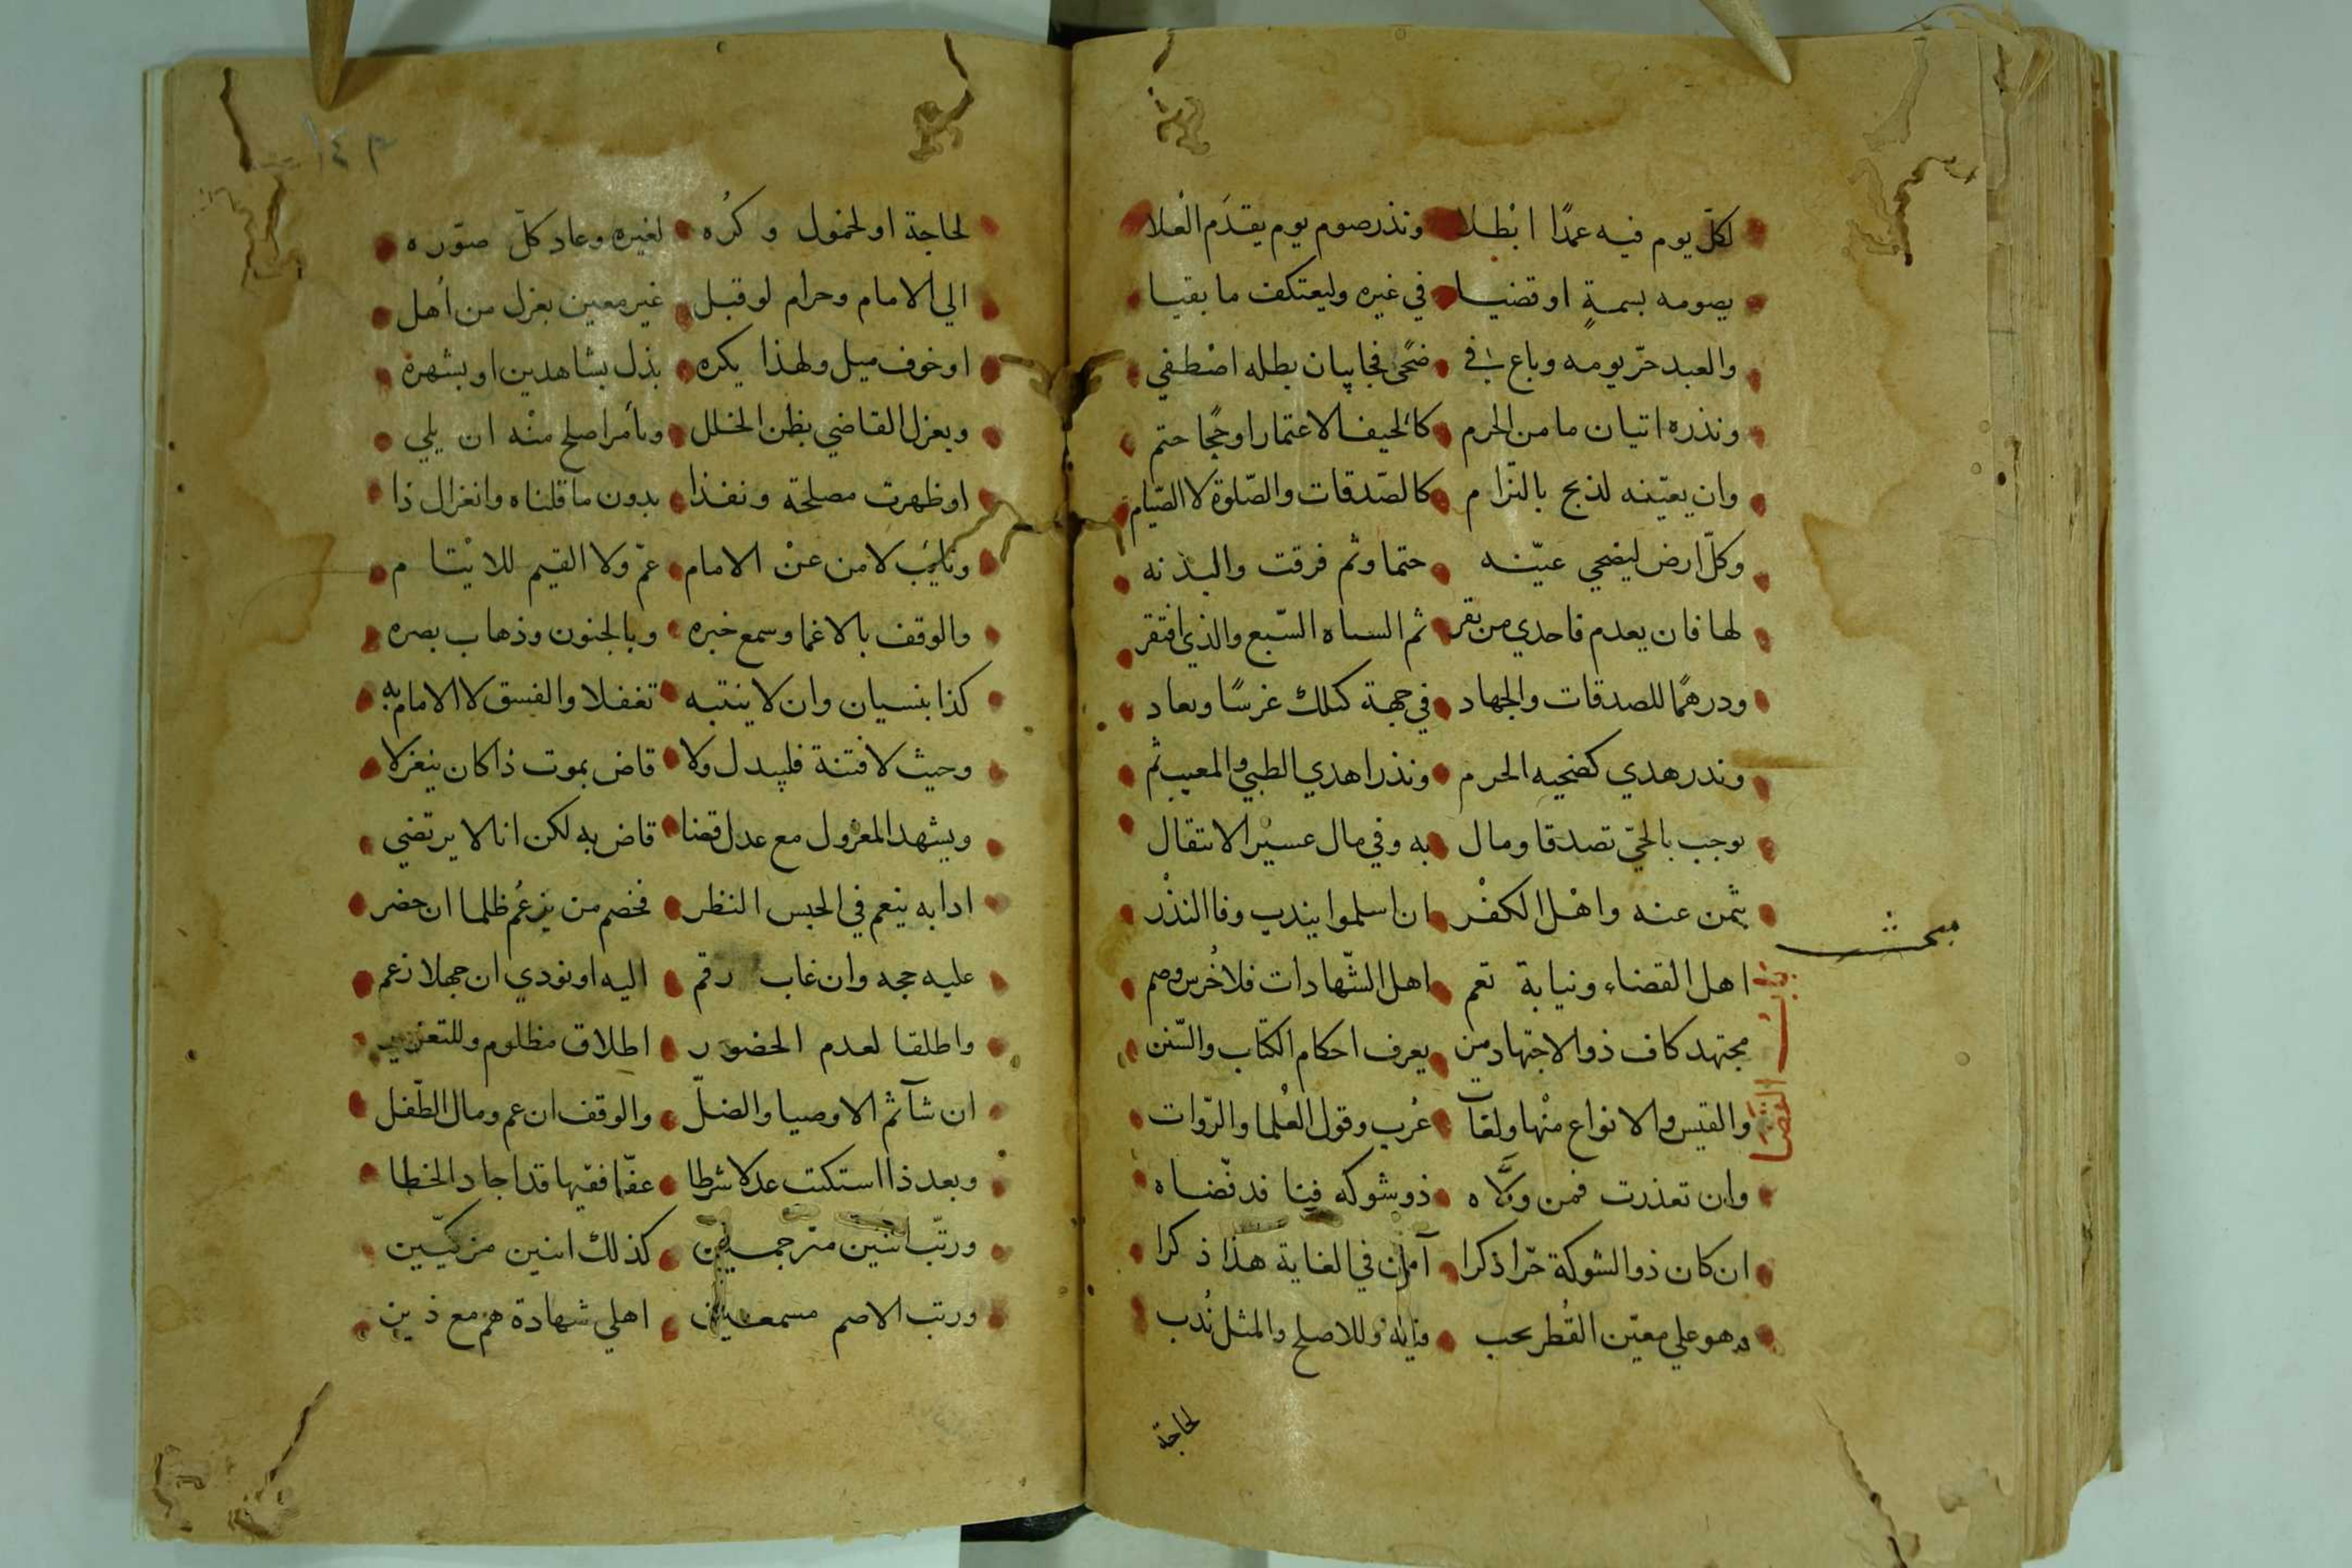 لكل يوم فيه عمدًا ابْطلا ونذر صوم يوم يقدَم العُلا
يصومه بسمةٍ او قضيا في غيره وليعتكف ما بقيا
والعبد حرّ يومه وباع في ضحًى فجا بان بطله اصْطفي
ونذره اتيان ما من الحرم كالخيف الاعتمار او حجًا حتم
وان يعيّنه لذبح بالتزام كالصّدقات والصّلوة لا الصّيام
وكلّ ارض ليضحي عيّنه حتما وثم فرقت والبدنه
لها فان يعدم فاحدي من بقر ثم الشياه السّبع والذي افتقر
ودرهمًا للصدقات والجهاد في جهة كتلك غرسًا وبعاد
ونذر هدي كضحيه الحرم ونذر اهدي الظبي والمعيب ثم
يوجب بالحيّ تصدقا ومال به وفي مال عسيْر الانتقال
بثمن عنه واهْل الكفْر ان اسلموا يندب وفا النذْر
مبحث
باب القضا
اهل القضاء ونيابة تعم اهل الشّهادات فلا خُرس وصم
مجتهد كاف ذو الاجتهاد من يعرف احكام الكتاب والسّنن
والقيس والانواع منْها ولغات عُرب وقول العُلما والرّوات
وان تعذرت فمن ولّاه ذو شوكه فينا قد قضاه
ان كان ذو الشوكة حرّا ذكرا في الغاية هذا ذكرا
وهو علي معيّن القُطر يجب وللاصلح والمثل نُدب
لحاجة
١٤٣
لحاجة او لخمول وكُره لغيره وعاد كلّ صوّره
الي الامام وحرام لو قبل غير معين بعزل من أهل
او خوف ميل ولهذا يكره بذل بشاهدين او بشهره
ويعزل القاضي بظن الخلل وبأمر اصلح منْه ان يلي
او ظهرت مصلحة ونفذا بدون ما قلناه وانعزال ذا
ونائب لا من عنْ الامام عمّ ولا القيم للايْتام
والوقف بالاغما وسمع خبره وبالجنون وذهاب بصره
كذا بنسيان وان لا ينتبه تغفلا والفسق لا الامام به
وحيث لا فتنة فليبدل ولا قاض بموت ذا كان ينعزلا
ويشهد المعزول مع عدل قضا قاض به لكن انا لا يرتضي
ادابه ينعم في الحبس النظر فخصم من يزعُم ظلما ان حضر
عليه حجه وان غاب رقم اليه او نودي ان جهلا زعم
واطلقا لعدم الحضور اطلاق مظلوم وللتعزير
ان شآ ثم الاوصيا والضلّ والوقف ان عم ومال الطّفل
وبعد ذا استكتب عدلا شرطا عفّا فقيها قد اجاد الخطا
ورتّب اثنين مترجمين كذلك اثنين مزكيّين
ورتب الاصم مسمعين اهلي شهادة هم مع ذين